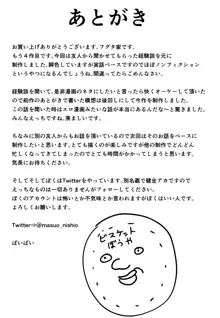 あとがき
お買い上げありがとうございます。フダダ家です。
もう4作目です、今回は友人から聞かせてもらった経験談を元に
制作しました。脚色していますが実話ベースですのでほぼノンフィクション
というやつになるんでしょうね。間違ってたらごめんなさい。
経験談を聞いて、是非漫画のネタにしたいと言ったら快くオーケーして頂いた
ので前作のあとがきで書いた構想は後回しにして今作を制作しました。
この話を聞いた時はエロ漫画みたいな話が本当にあるんだな〜と驚きました。
みんなえっちですね。羨ましい。
ちなみに別の友人からもお話を頂いているので次回はそのお話をベースに
制作したいと思います。とても描くのが楽しみですが他の制作でどんどん
忙しくなってきてしまったのでとても時間がかかってしまうと思います。
気長にお待ちください。
そしてそしてぼくはTwitterをやっています。別名義で健全アカですので
えっちなものは一切ありませんがフォローしてください。
ぼくのアカウントは怖いとか不気味とか言われますがぼくはいい人です。
よろしくお願いします。
Twitter⇒@masuo_nishio
ばいばい
ビスケット
ぼうや